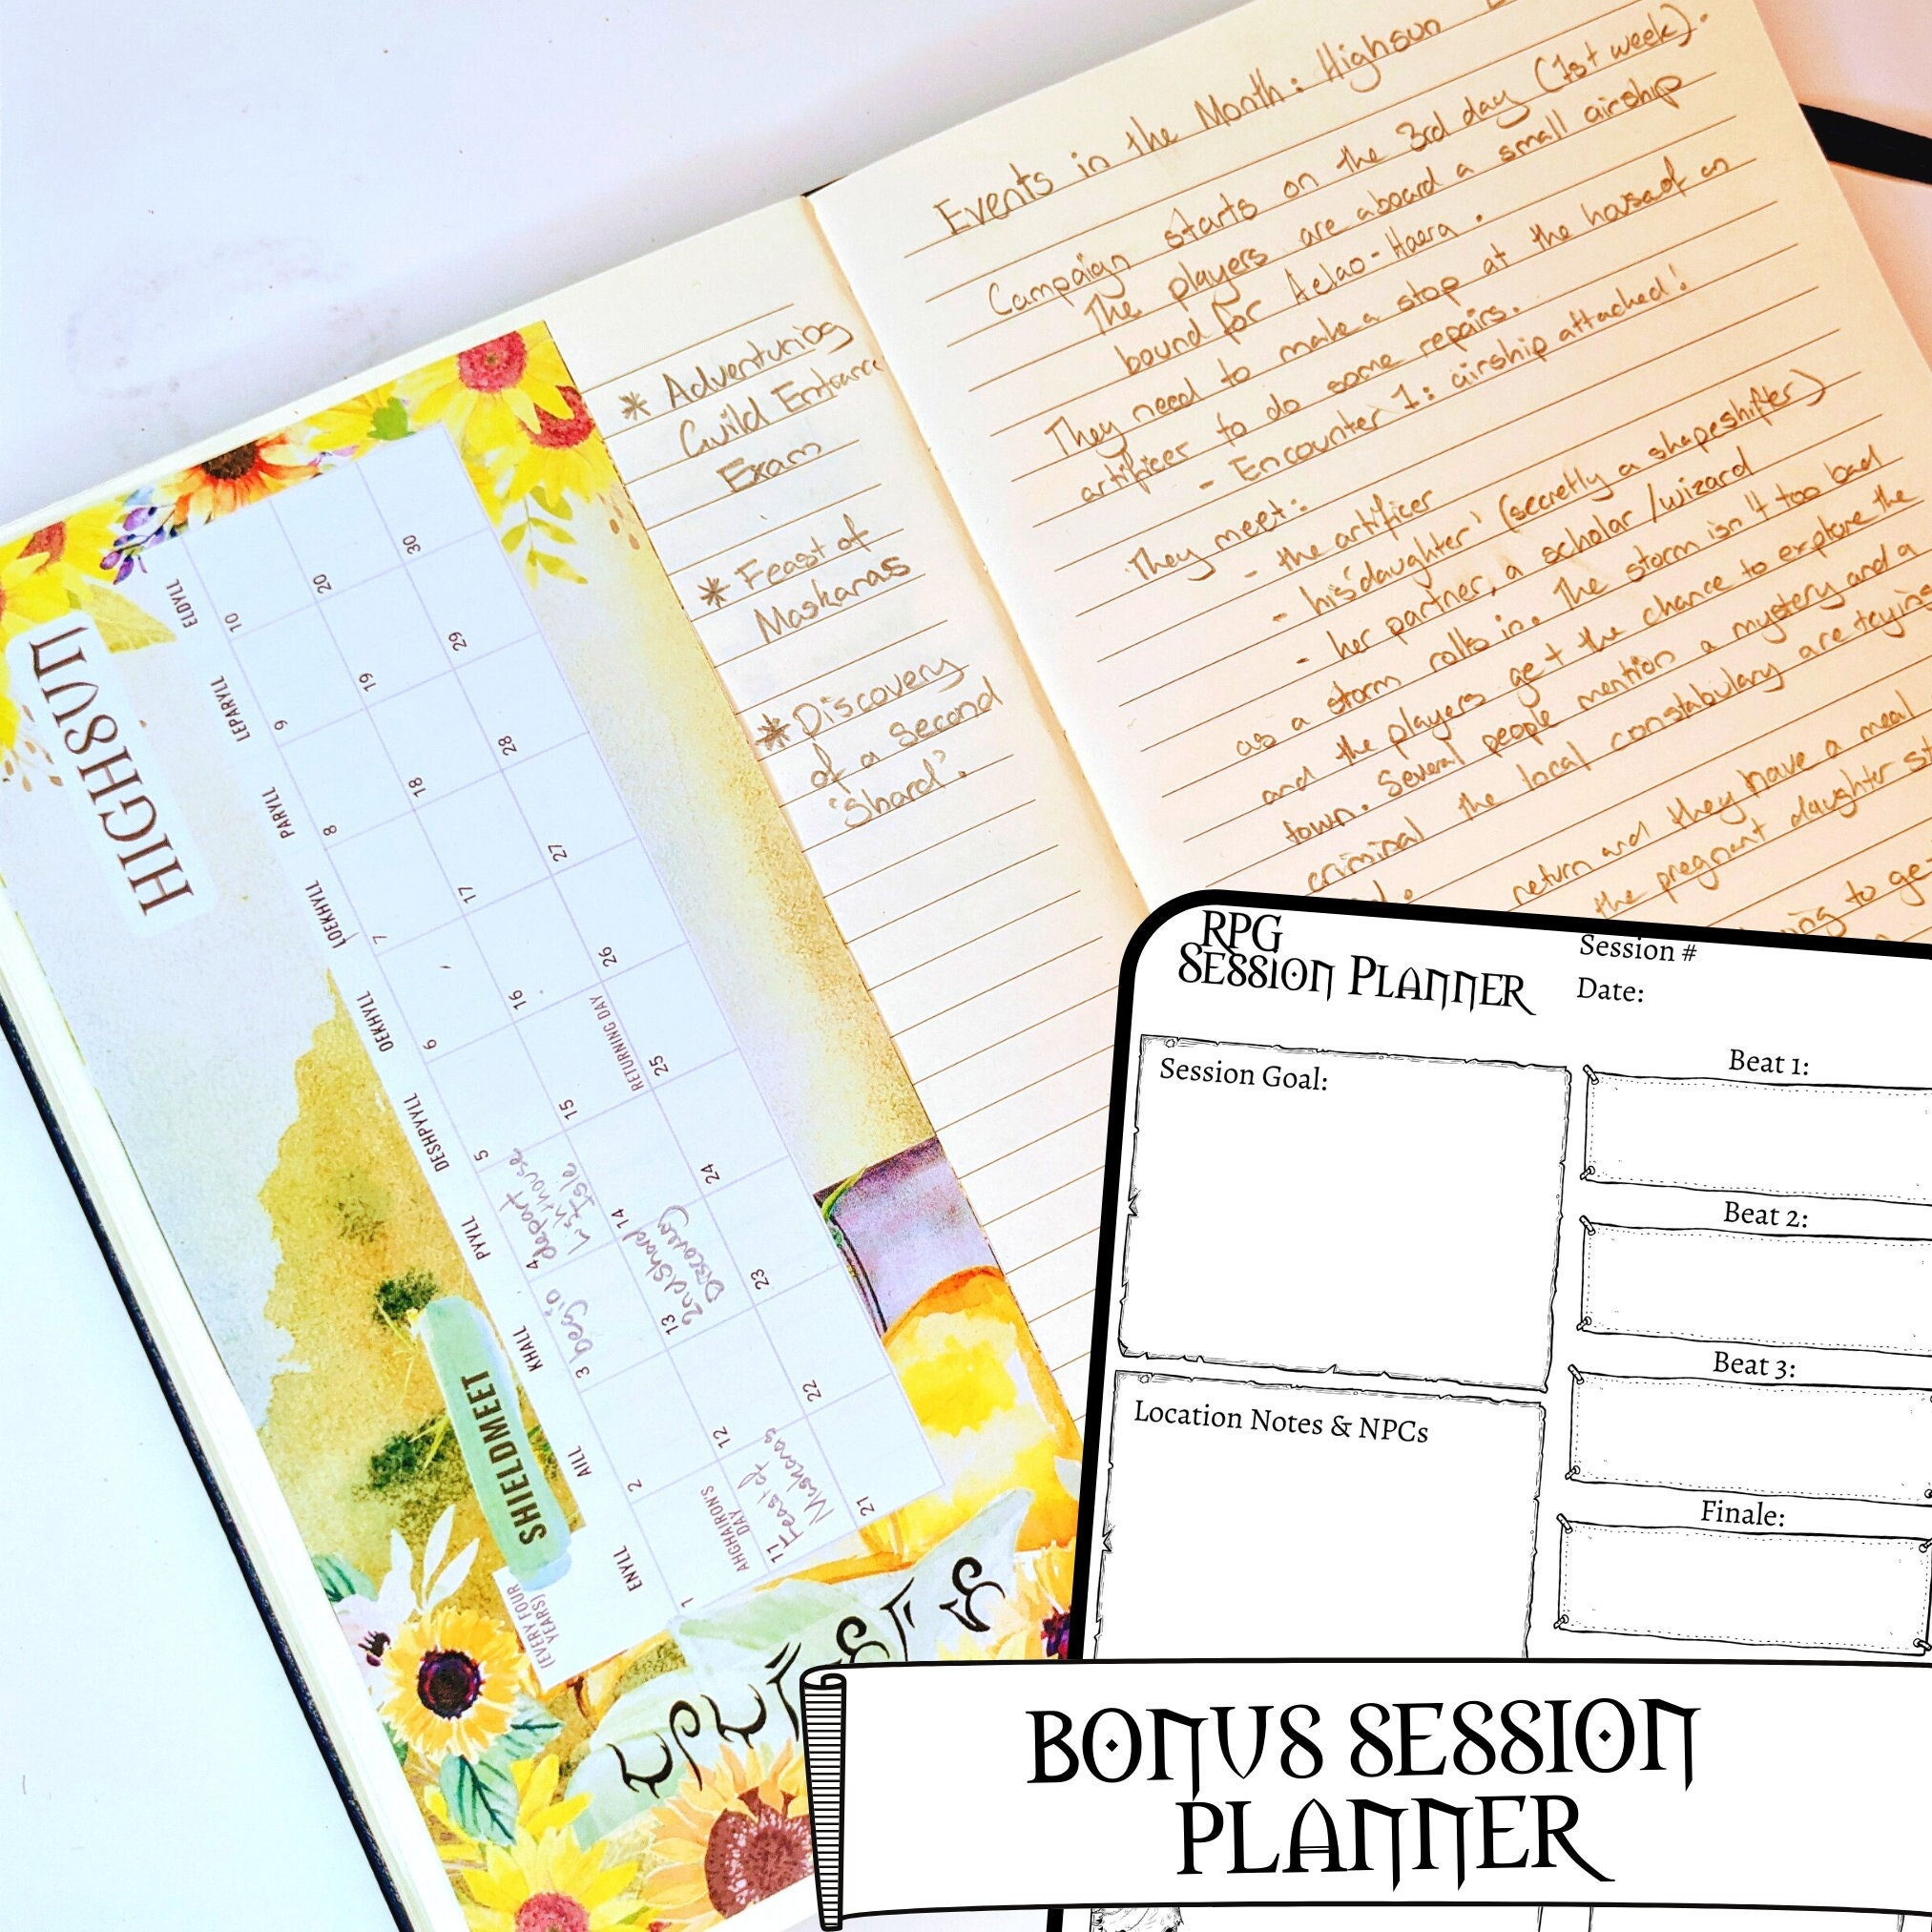 HIGHSUN
SHIELDMEET
(EVERY FOUR
YEARS)
ENYLL
AILL
KHALL
PYYLL
DESHPYLL
OEKHYLL
LOEKHYLL
PARYLL
LEPARYLL
ELDYLL
1
2
3 begin
4 depart
Lishhouse
Isle
5
6
7
8
9
10
AHGHAIRON'S
DAY
11 Feast of
Maskanas
12
13 2nd Shard
Discovery
14
15
16
17
18
19
20
21
22
23
24
25
RETURNING DAY
26
27
28
29
30
* Adventuring
Guild Entrance
Exam
* Feast of
Maskanas
* Discovery
of a second
'Shard'.
Events in the Month: Highsun
Campaign starts on the 3rd day (1st week).
The players are aboard a small airship
bound for Aelao-Haera.
They need to make a stop at the house of an
artificer to do some repairs.
- Encounter 1: airship attached!
They meet:
- the artificer
- his 'daughter' (secretly a shapeshifter)
- her partner, a scholar/wizard
as a storm rolls in. The storm isn't too bad
and the players get the chance to explore the
town. Several people mention a mystery and a
criminal the local constabulary are trying
return and they have a meal
the pregnant daughter
to
RPG
SESSION PLANNER
Session #
Date:
Session Goal:
Location Notes & NPCs
Beat 1:
Beat 2:
Beat 3:
Finale:
BONUS SESSION
PLANNER